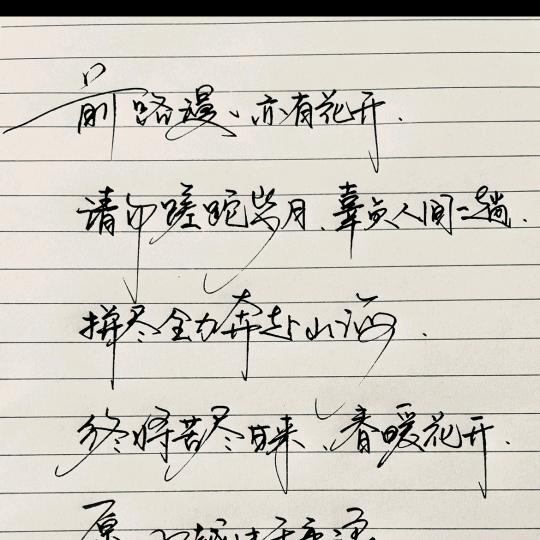 前路漫、亦有花开.
请勿蹉跎岁月、辜负人间一趟.
拼尽全力奔赴山海.
终将苦尽甘来、春暖花开.
原